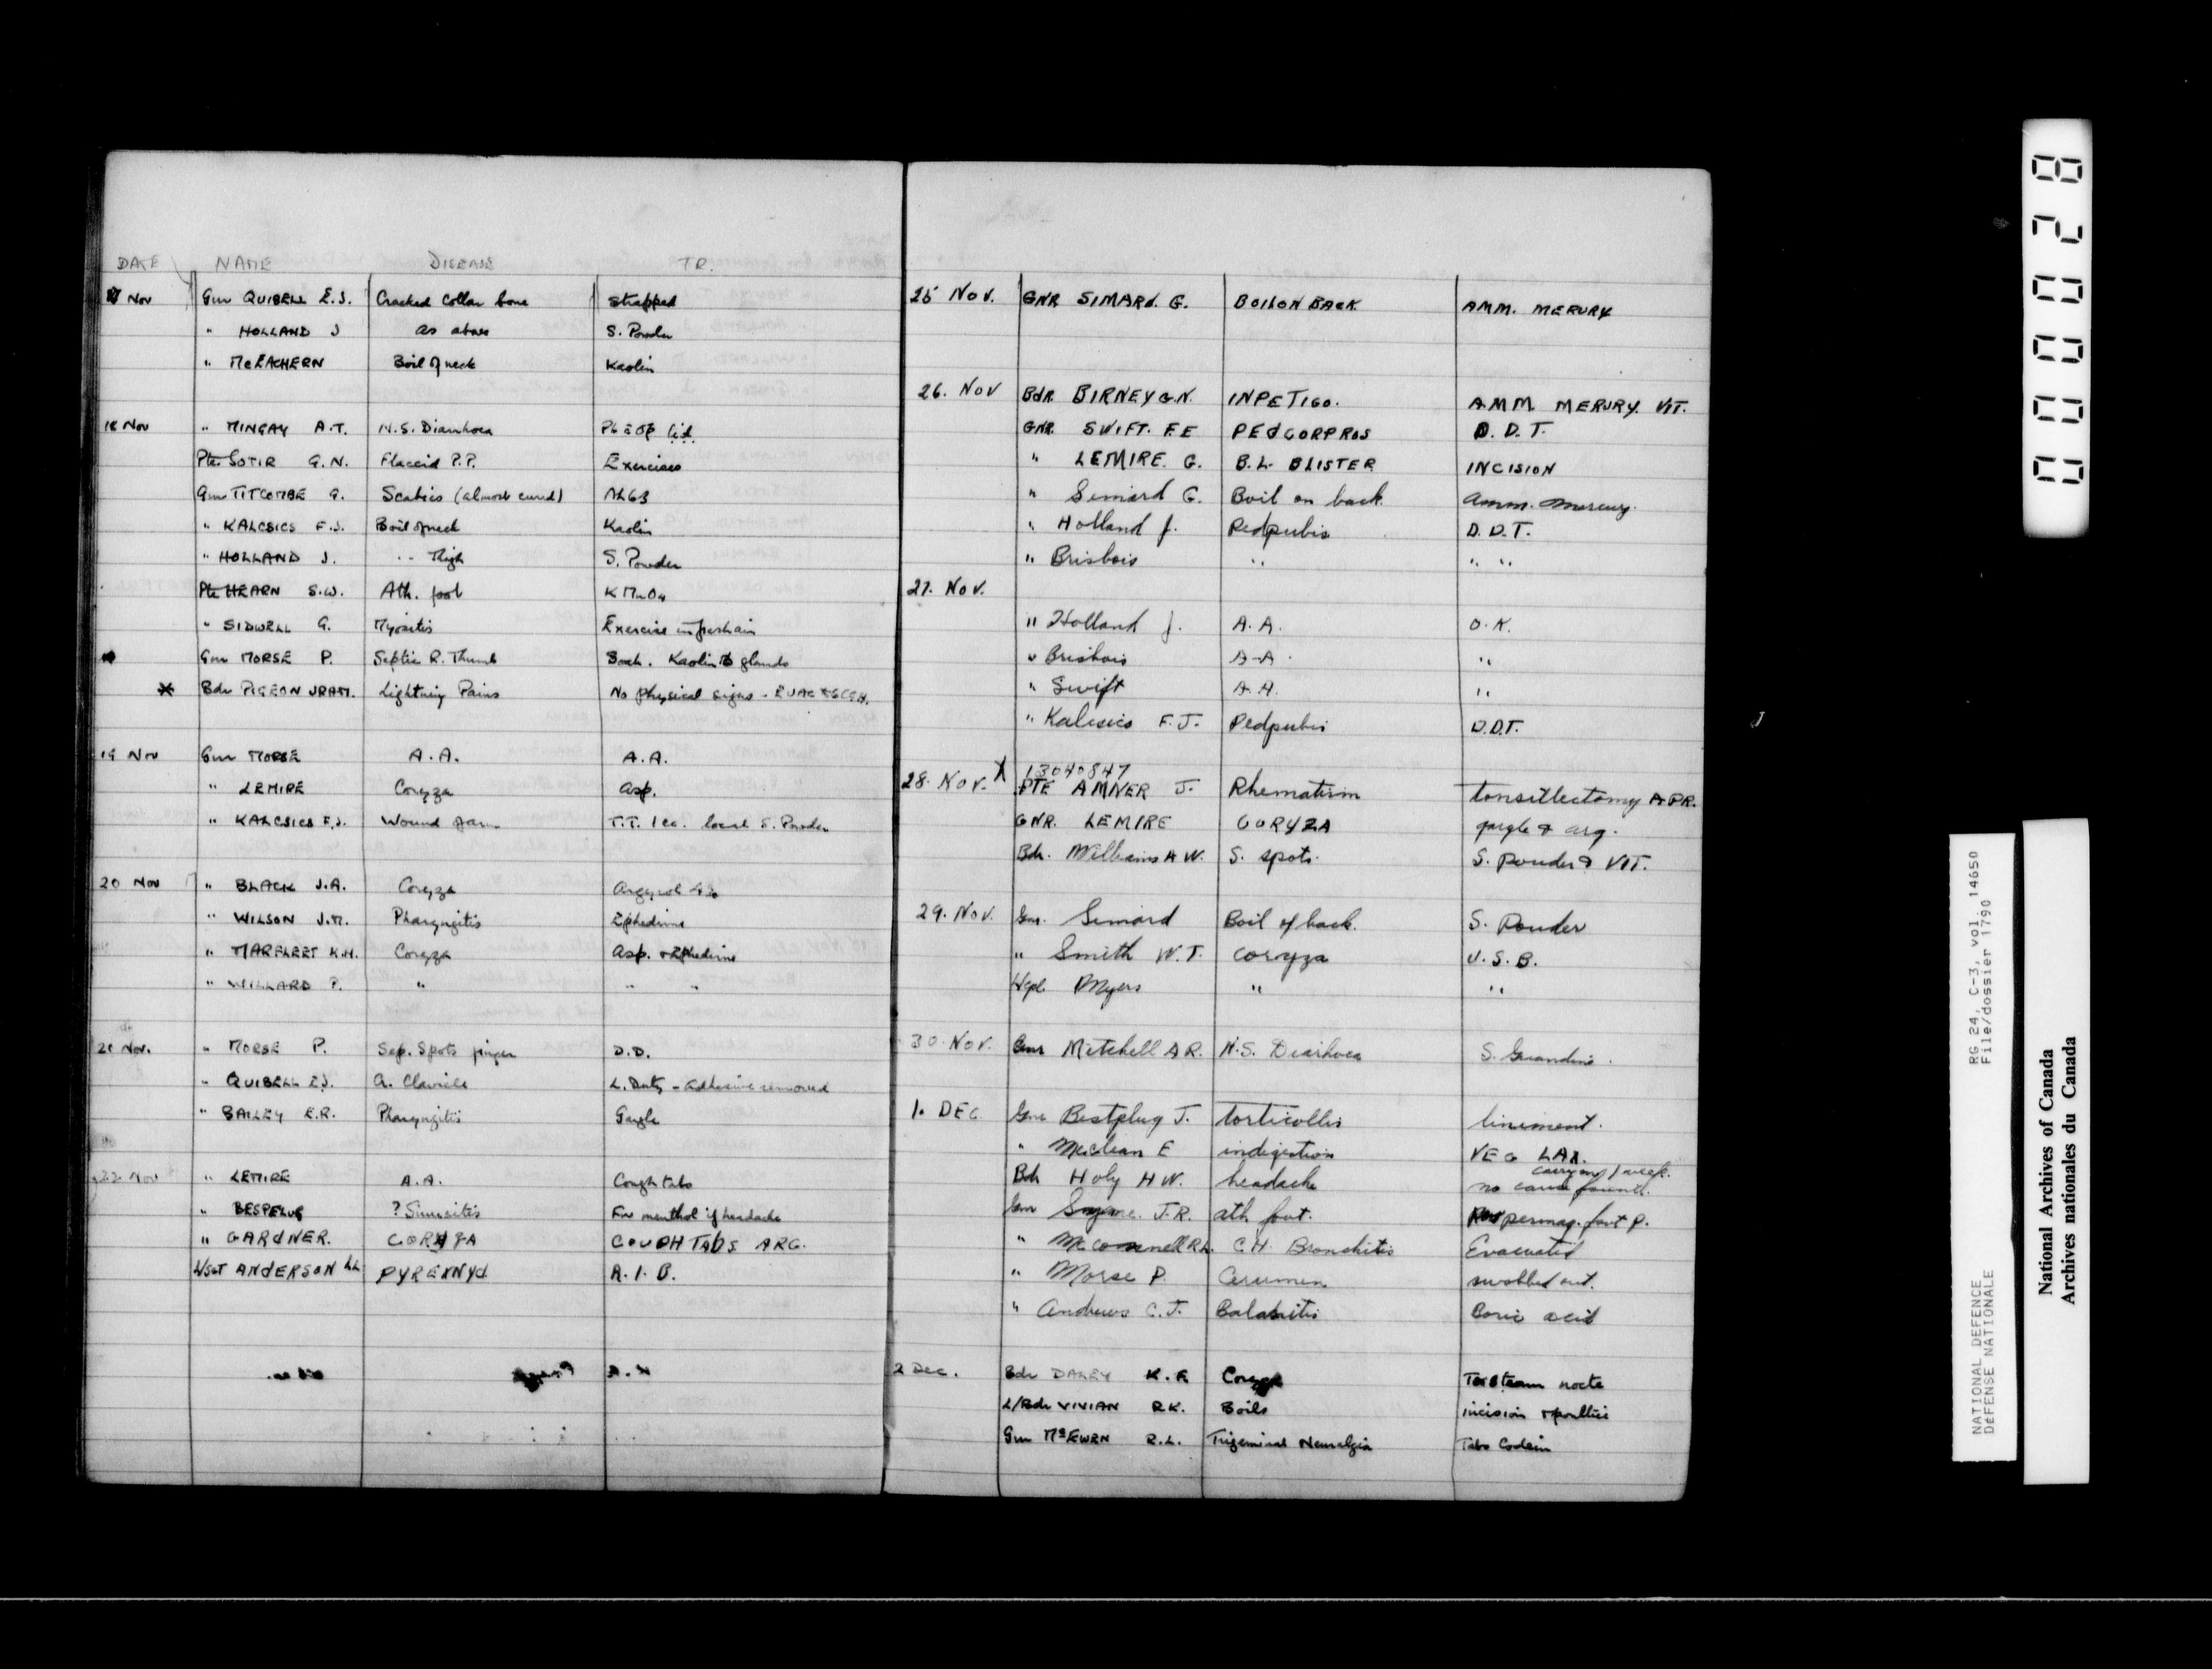 DATE NAME DISEASE TR.
17 Nov Gnr QUIBELL E.J. Cracked Collar bone Strapped
" HOLLAND J as above S. Powder
" McEACHERN Boil of neck Kaolin
18 Nov " MINGAY A.T. N.S. Diarrhoea
Pte. SOTIR G.N. Flaccid P.P. Exercises
Gnr TITCOMBE G. Scabies (almost cured)
" KALCSICS F.J. Boil of neck Kaolin
" HOLLAND J. " " Thigh S. Powder
Pte HEARN S.W. Ath. foot KMnO4
" SIDWELL G. Myositis Exercise in fresh air
Gnr MORSE P. Septic R. Thumb Soak. Kaolin to glands
Bdr PIGEON Lightning Pains No physical signs - EVAC
19 Nov Gnr MORSE A.A. A.A.
" LEMIRE Coryza Asp.
" KALCSICS F.J. Wound T.T. 1cc. local S. Powder
20 Nov " BLACK J.A. Coryza Argyrol
" WILSON J.M. Pharyngitis Ephedrine
" MARFLEET K.H. Coryza Asp. + Ephedrine
" WILLARD P. " " "
21 Nov. " MORSE P. Sep. Spots finger D.D.
" QUIBELL E.J. a. Clavicle L. Duty - adhesive removed
" BAILEY E.R. Pharyngitis Gargle
22 Nov " LEMIRE A.A. Cough tabs
" BESPELUG ? Sinusitis For menthol if headache
" GARDNER. CORYZA COUPH TABS ARG.
L/SGT ANDERSON PYREXNYD A.I.B.
25 NOV. GNR SIMARD. G. BOILON BACK AMM. MERURY
26. NOV BdR. BIRNEY G.N. INPETIGO. AMM MERURY. VIT.
GNR. SWIFT. F.E PEDCORPROS D.D.T.
" LEMIRE. G. B.L. BLISTER INCISION
" Simard G. Boil on back. amm. mercury.
" Holland J. Pedpubis D.D.T.
" Brisbois " " "
27. NOV.
" Holland J. A.A. O.K.
" Brisbois A-A. "
" Swift A.A. "
" Kalcsics F.J. Pedpubis D.D.T.
13040847
28. NOV. X PTE AMNER J. Rhematism tonsillectomy APR.
GNR. LEMIRE CORYZA gargle & arg.
Bdr. Williams A W. S. spots. S. Powder & VIT.
29. NOV. Gnr. Simard Boil of back. S. Powder
" Smith W.T. coryza U.S.B.
Myers " "
30. NOV. Gnr Mitchell A R. N.S. Diarhoea S. Guandine.
1. DEC. Gnr Bestplug J. torticollis liniment.
" McClean E indigestion VEG LAX.
carry on 1 week.
Bdr Holy H W. headache no cause found.
Gnr J.R. ath foot. permag. foot P.
" McConnell R.L. C.H. Bronchitis Evacuated
" Morse P. Cerumen swobbed out.
" Andrews C.J. Balanitis Boric acid
2 Dec. Bdr DALEY K.F. Coryza nocte
L/Bdr VIVIAN R.K. Boils incision + poultice
Gnr McEWEN R.L. Trigeminal Neuralgia Tabs Codein
000028
RG 24, C-3, vol. 14650
File/dossier 1790
NATIONAL DEFENCE
DÉFENSE NATIONALE
National Archives of Canada
Archives nationales du Canada